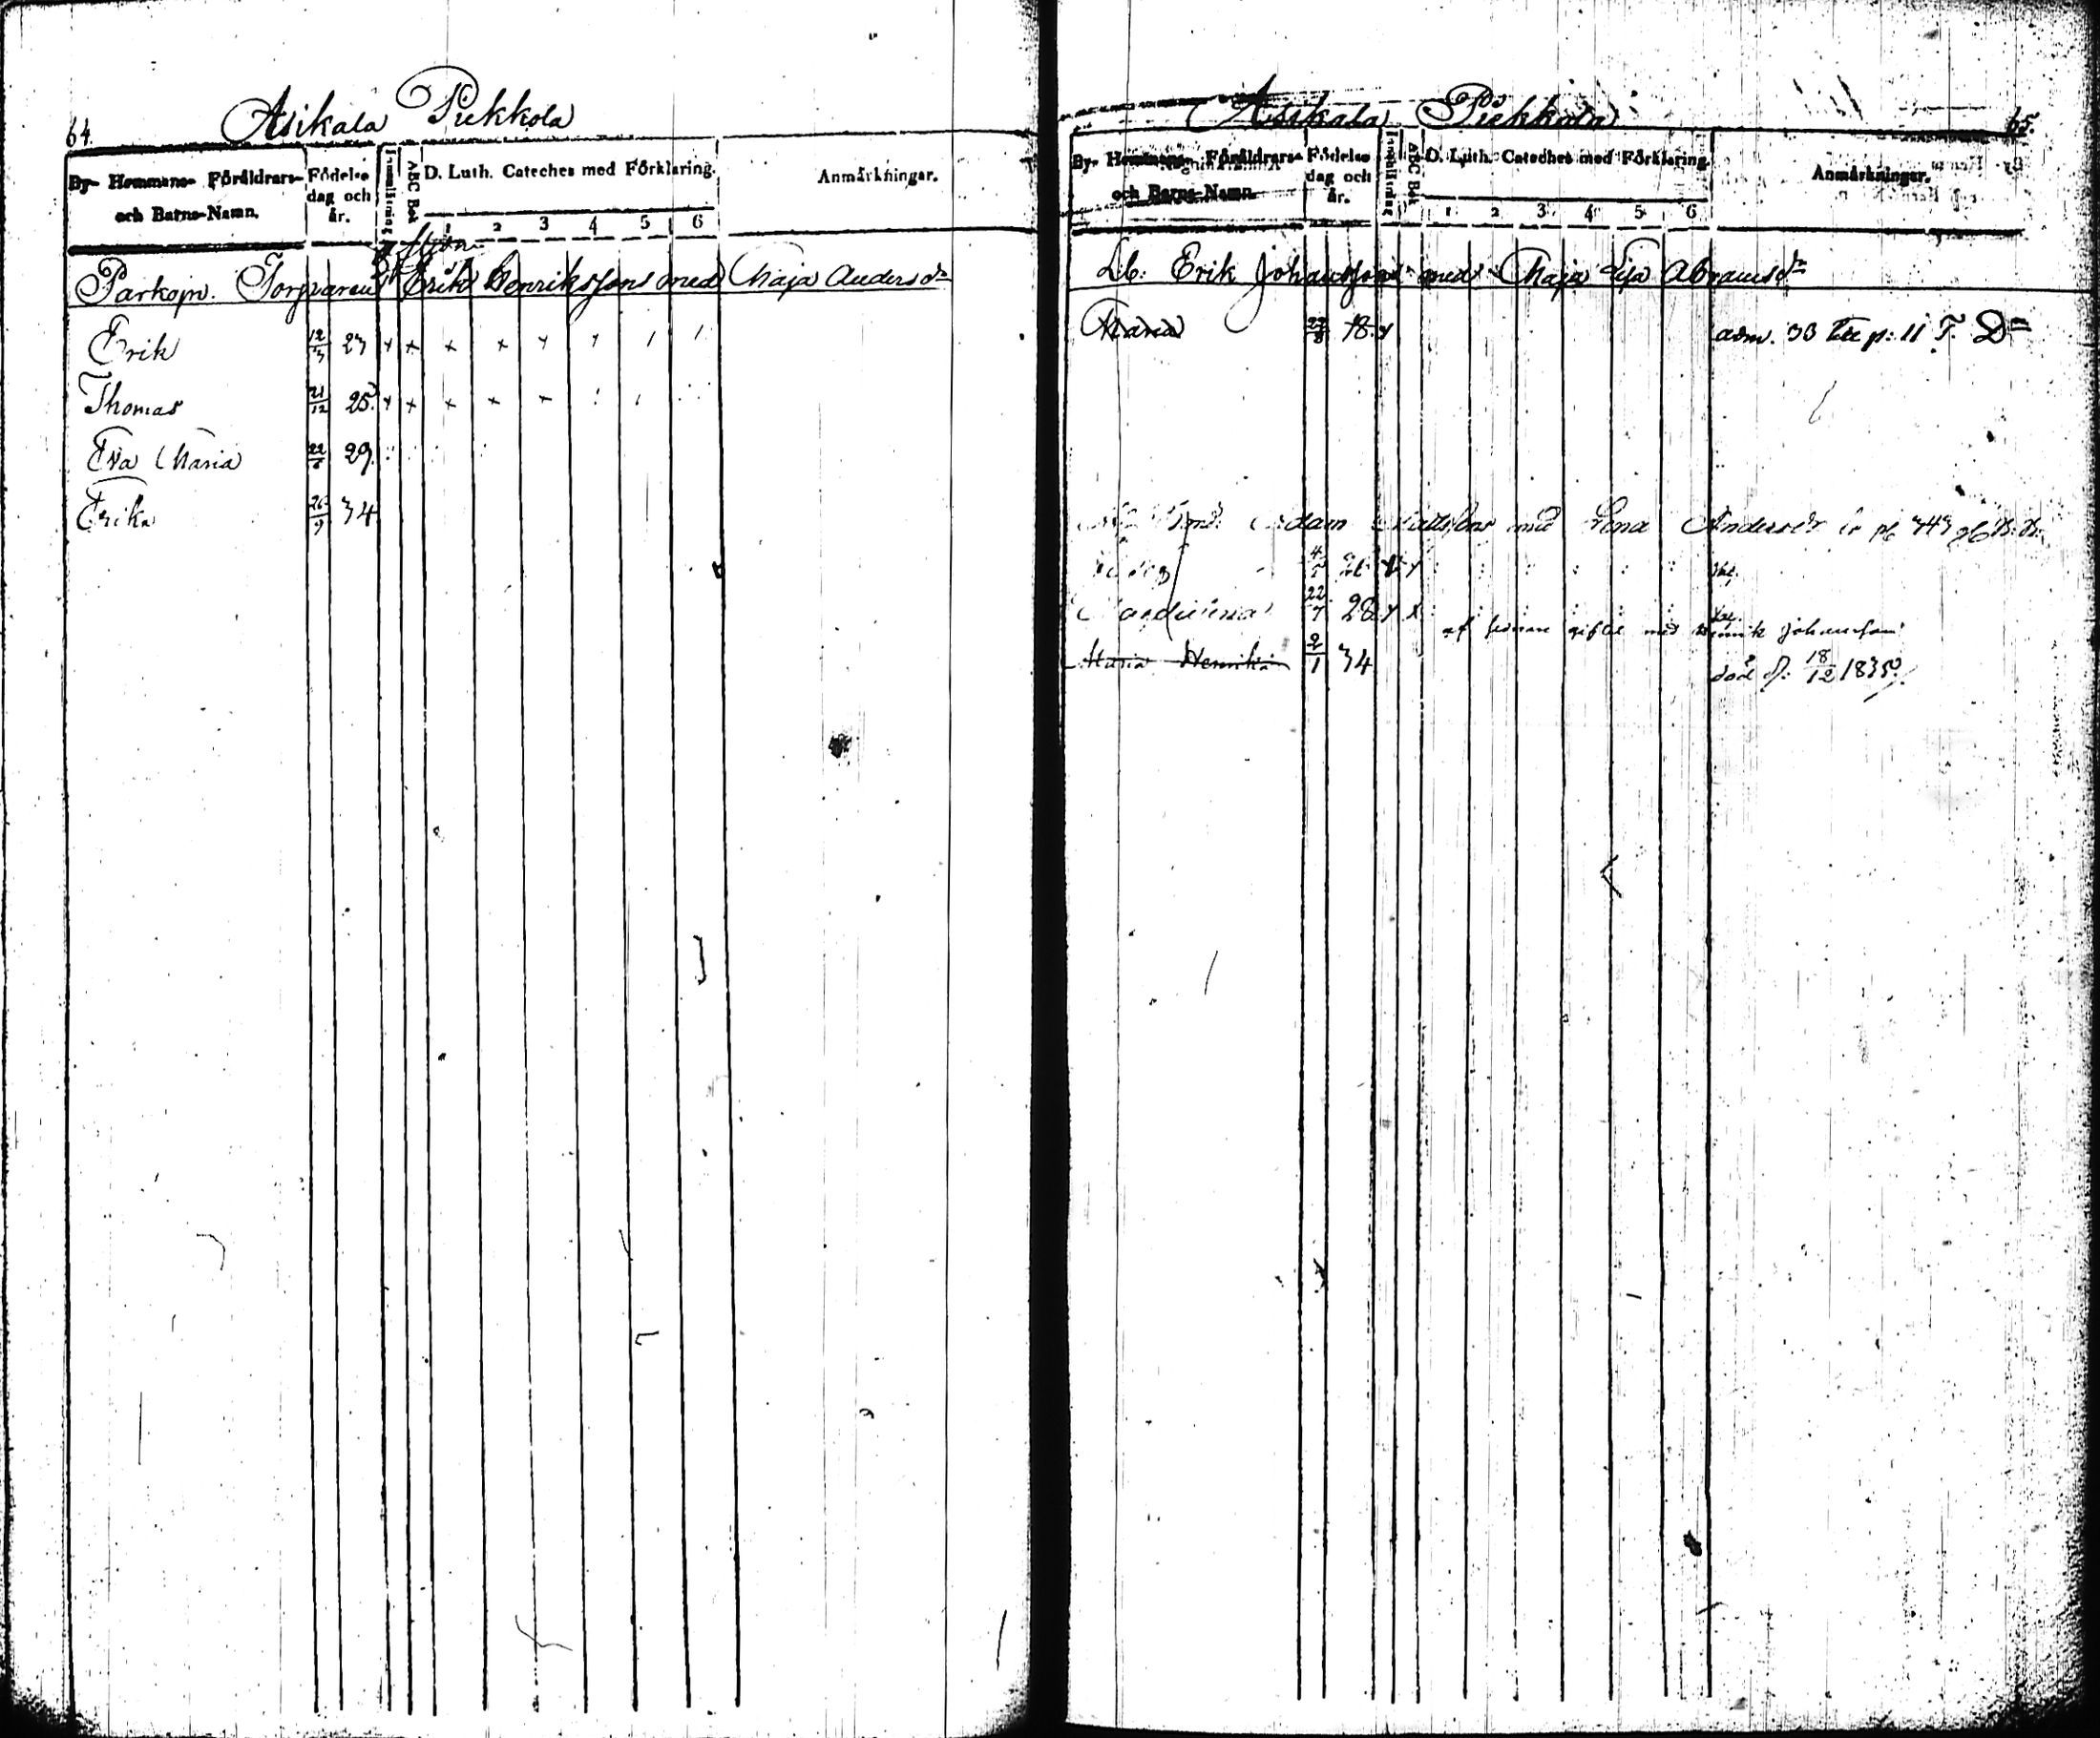 64.
Asikala Piekkola
By- Hemmans- Föräldrars- och Barns-Namn.
Födelse dag och år.
Innanläsning
ABC Bok
D. Luth. Cateches med Förklaring.
1 2 3 4 5 6
Anmärkningar.
Torparens Erik Henrikssons med Maja Andersdr
Erik 12/3 23 x x x x x
Thomas 21/12 25. x x x x x
Eva Maria 22/6 29.
Erika 26/9 34
65.
Asikala Piekkola
By- Hemmans- Föräldrars- och Barns-Namn.
Födelse dag och år.
Innanläsning
ABC Bok
D. Luth. Catechet med Förklaring.
1 2 3 4 5 6
Anmärkningar.
Lb: Erik Johanssons med Maja Lisa Abramsdr
Maria 18. adm. 33 p: 11 T. Dn
Adam Mattssons med Lena Andersdr
22/7 28
gift med Henrik Johansson
Maria Henrika 2/1 34 död d. 18/12 1835.